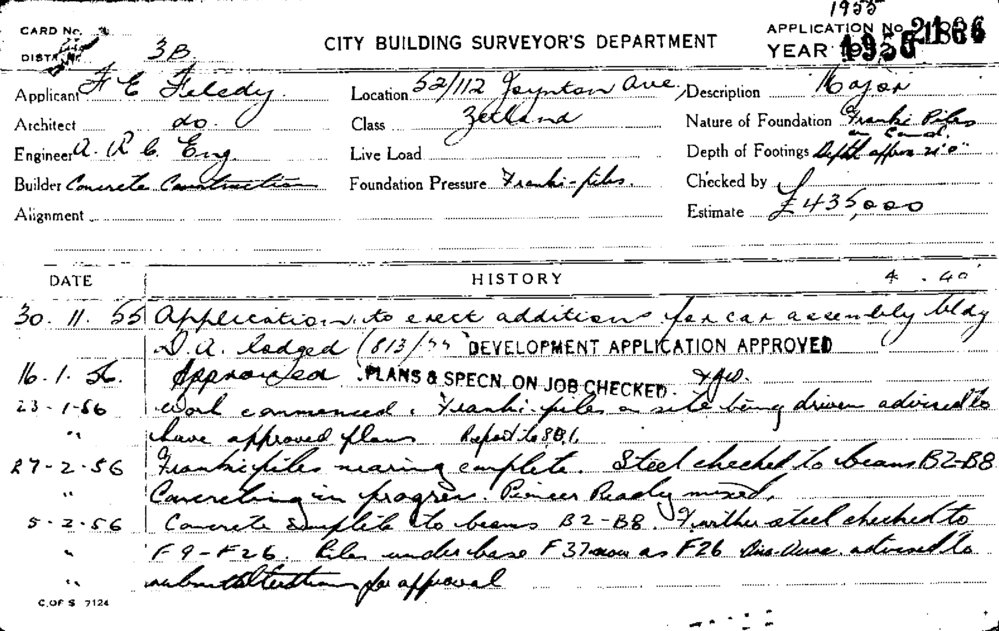 1955
CARD No. CITY BUILDING SURVEYOR'S DEPARTMENT APPLICATION No.
DISTRICT 3B YEAR
Applicant F E Feledy. Location 52/112 Joynton Ave, Description Major
Architect do. Class Zetland Nature of Foundation Franki Piles
Engineer A. R. C. Eng. Live Load Depth of Footings Depth approx 21'0"
Builder Concrete Construction Foundation Pressure Franki-piles. Checked by
Alignment Estimate £435,000
DATE HISTORY
30. 11. 55 Application to erect additions for car assembly bldg
D. A. lodged (813/55 DEVELOPMENT APPLICATION APPROVED
16. 1. 56. Approved. PLANS & SPECN. ON JOB CHECKED.
23-1-56 Work commenced. Franki-piles on site being driven advised to
" have approved plans Report to
27-2-56 Franki piles nearing complete. Steel checked to beams B2-B8
" Concreting in progress. Pioneer Ready mixed.
5-2-56 Concrete complete to beams B2-B8. Further steel checked to
" F9-F26. Piles under base F37 as F26 advised to
" submit for approval
C.OF S 7124